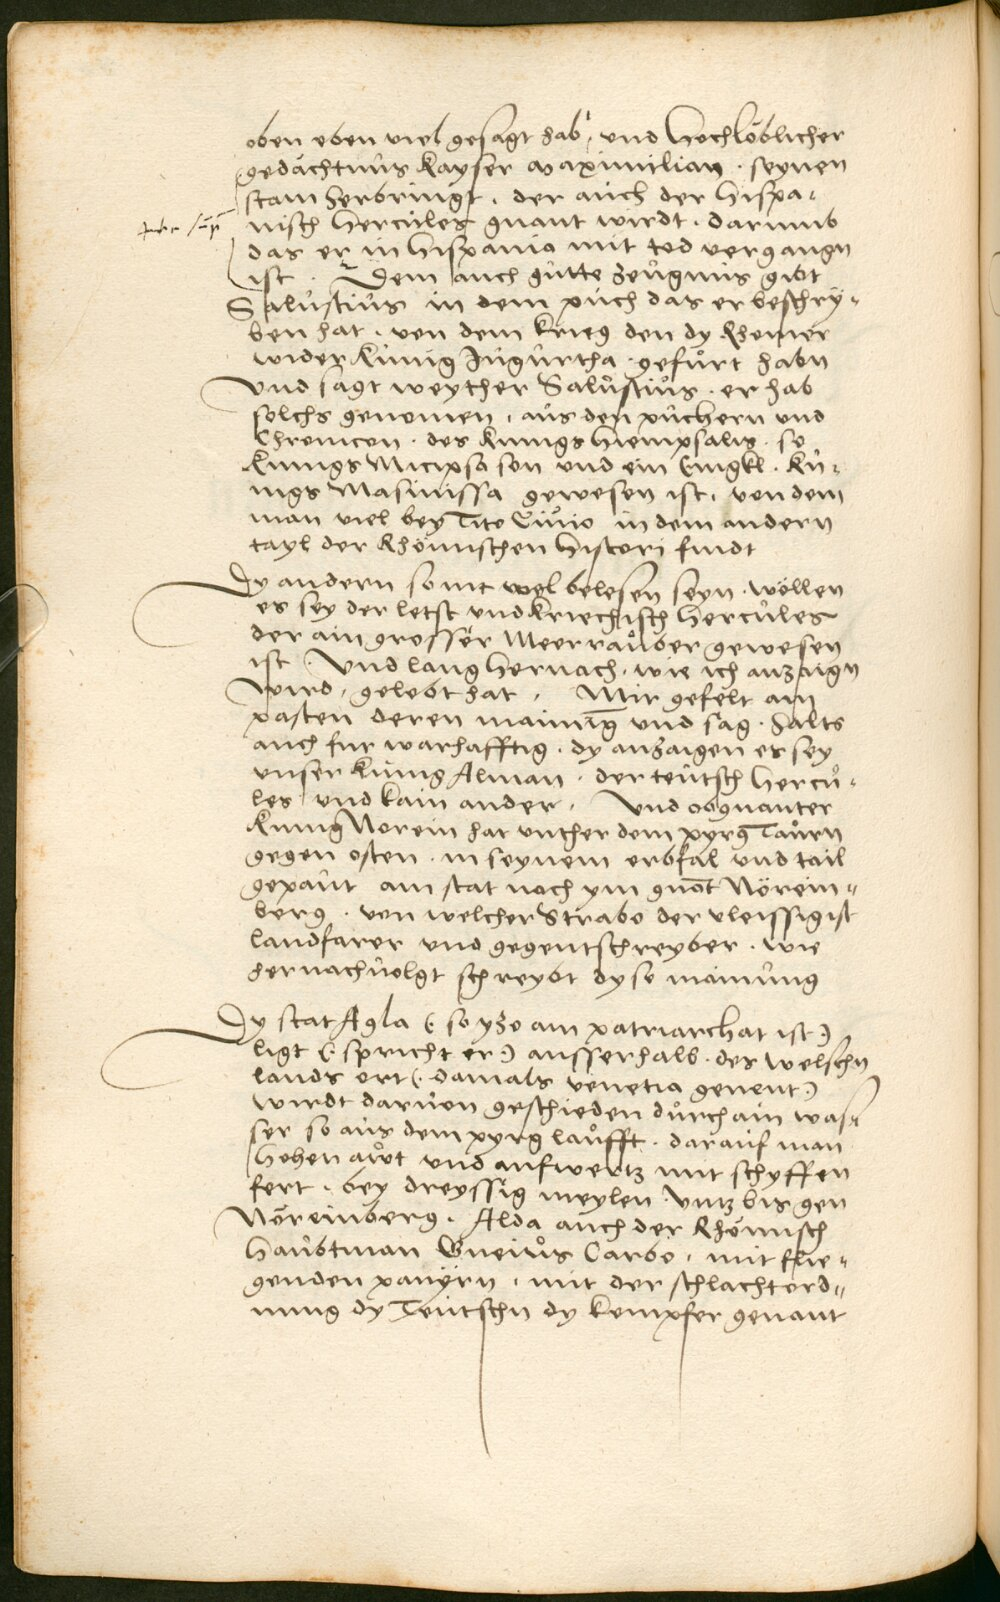 oben eben viel gesagt hab, und Hochlöblicher
gedächtnüs Kayser Maximilian. seynen
stam herbringt. der aüch der Hispa-
nisch Hercüles gnant wirdt. darumb
das er in Hispania mit tod vergangn
ist. Dem auch gütte zeügnüs gibt
Salüstiüs in dem püch das er beschry-
ben hat. von dem krieg den dy Rhomer
wider Künig Jügürtha gefürt habn
Und sagt weyther Salůstiůs. er hab
solchs genomen, aüs den püchern und
Chronicon. des Künigs Hiempsalis. so
Künigs Micipsa son und ein Enigkl. Kü-
nigs Masinissa gewesen ist, von dem
man viel bey Tito Livio in dem andern
tayl der Rhömischen Histori findt
Dy andern so nit wol belesen seyn. wöllen
es sey der letst und kriechisch Hercüles
der ain grosser Meerraüber gewesen
ist. Und lang hernach, wie ich anzaign
wird, gelebt hat. Mir gefelt am
pasten deren mainung und sag. halts
auch fur warhafftig. dy anzaigen es sey
unser Künig Alman. der teütsch Hercü-
les und kain ander. Und obgnanter
Künig Norein hat unther dem pyrg Taürn
gegen osten. in seynem erbfal und tail
gepaüt ain stat noch ym gnōt Nörein-
berg. von welcher Strabo der vleissigist
landfarer und gegentschreyber. wie
hernachvolgt schreybt dyse mainüng
Dy stat Agla (: so yzo ain patriarchat ist :)
ligt (: spricht er :) ausserhalb. des welschn
lands ort (: damals venetia genent :)
wirdt darvon geschieden dürch ain was-
ser so aüs dem pyrg laüfft. darauf man
Hohen awt und aufwertz mit schyffen
fert. bey dreyssig meylen untz bis gen
Nöreinberg. Alda auch der Rhömisch
Haübtman Gneiůs Carbo, mit flie-
genden panyrn, mit der schlachtord-
nung dy Teütschn dy kempfer genant